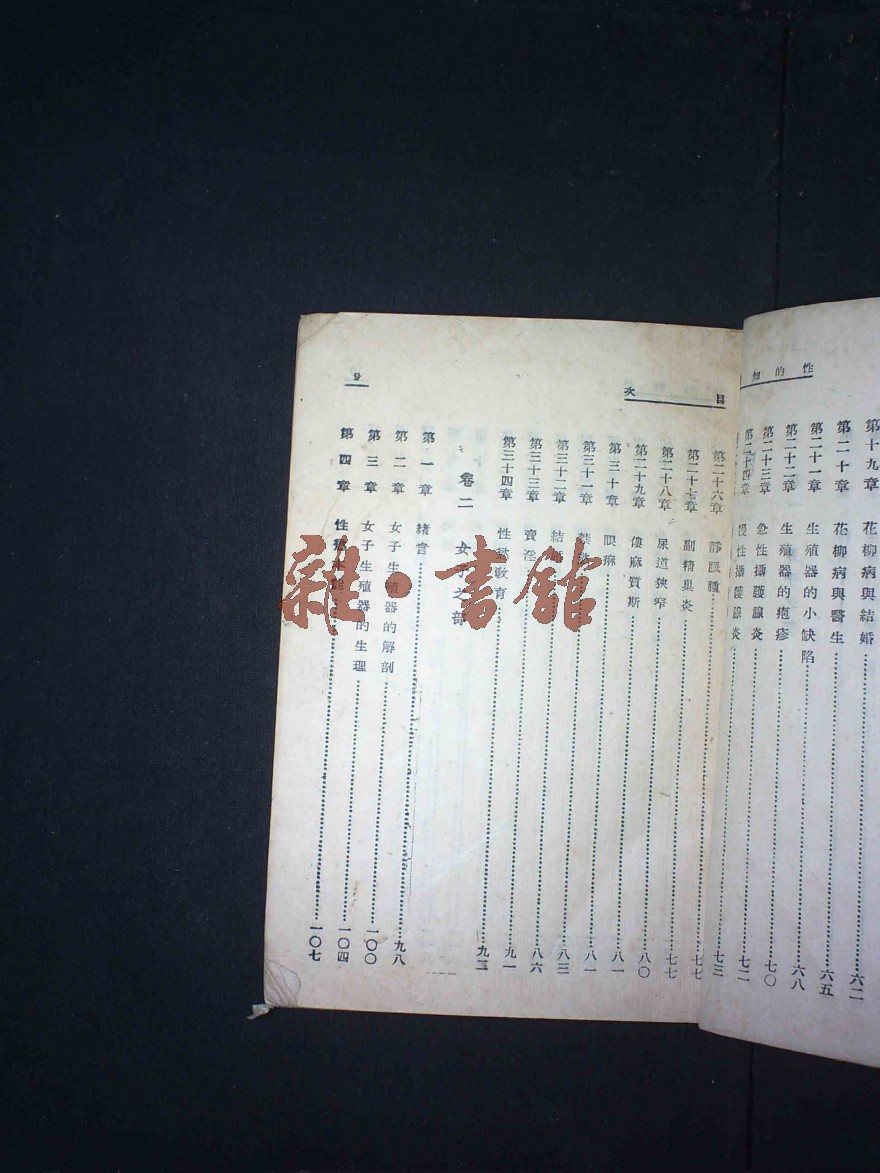 性的知
第十九章 花柳病與結婚 六二
第二十章 花柳病與醫生 六五
第二十一章 生殖器的小缺陷 六八
第二十二章 生殖器的疱疹 七〇
第二十三章 急性攝護腺炎 七二
第二十四章 慢性攝護腺炎 七三
目次
9
第二十六章 靜脈腫 七七
第二十七章 副精睾炎 七七
第二十八章 尿道狹窄 八〇
第二十九章 僂麻質斯 八一
第三十章 眼痳 八一
第三十一章 禁 八三
第三十二章 結婚 八六
第三十三章 賣淫 九一
第三十四章 性慾教育 九三
卷二 女子之部
第一章 緒言 九八
第二章 女子生殖器的解剖 一〇〇
第三章 女子生殖器的生理 一〇四
第四章 性慾本能 一〇七
雜·書館